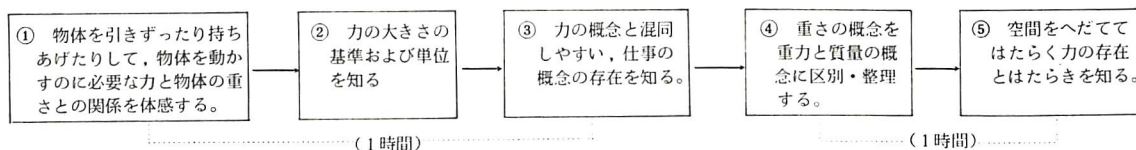 ① 物体を引きずったり持ち
あげたりして，物体を動か
すのに必要な力と物体の重
さとの関係を体感する。
② 力の大きさの
基準および単位
を知る
③ 力の概念と混同
しやすい，仕事の
概念の存在を知る。
④ 重さの概念を
重力と質量の概
念に区別・整理
する。
⑤ 空間をへだてて
はたらく力の存在
とはたらきを知る。
(１時間)
(１時間)